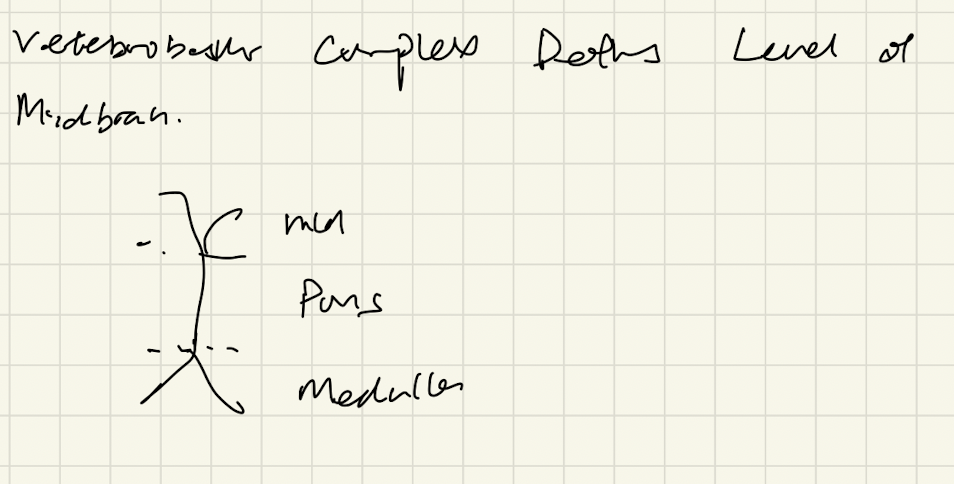 Vertebrobasilar Complex Defines Level of
Midbrain.
mid
Pons
Medulla